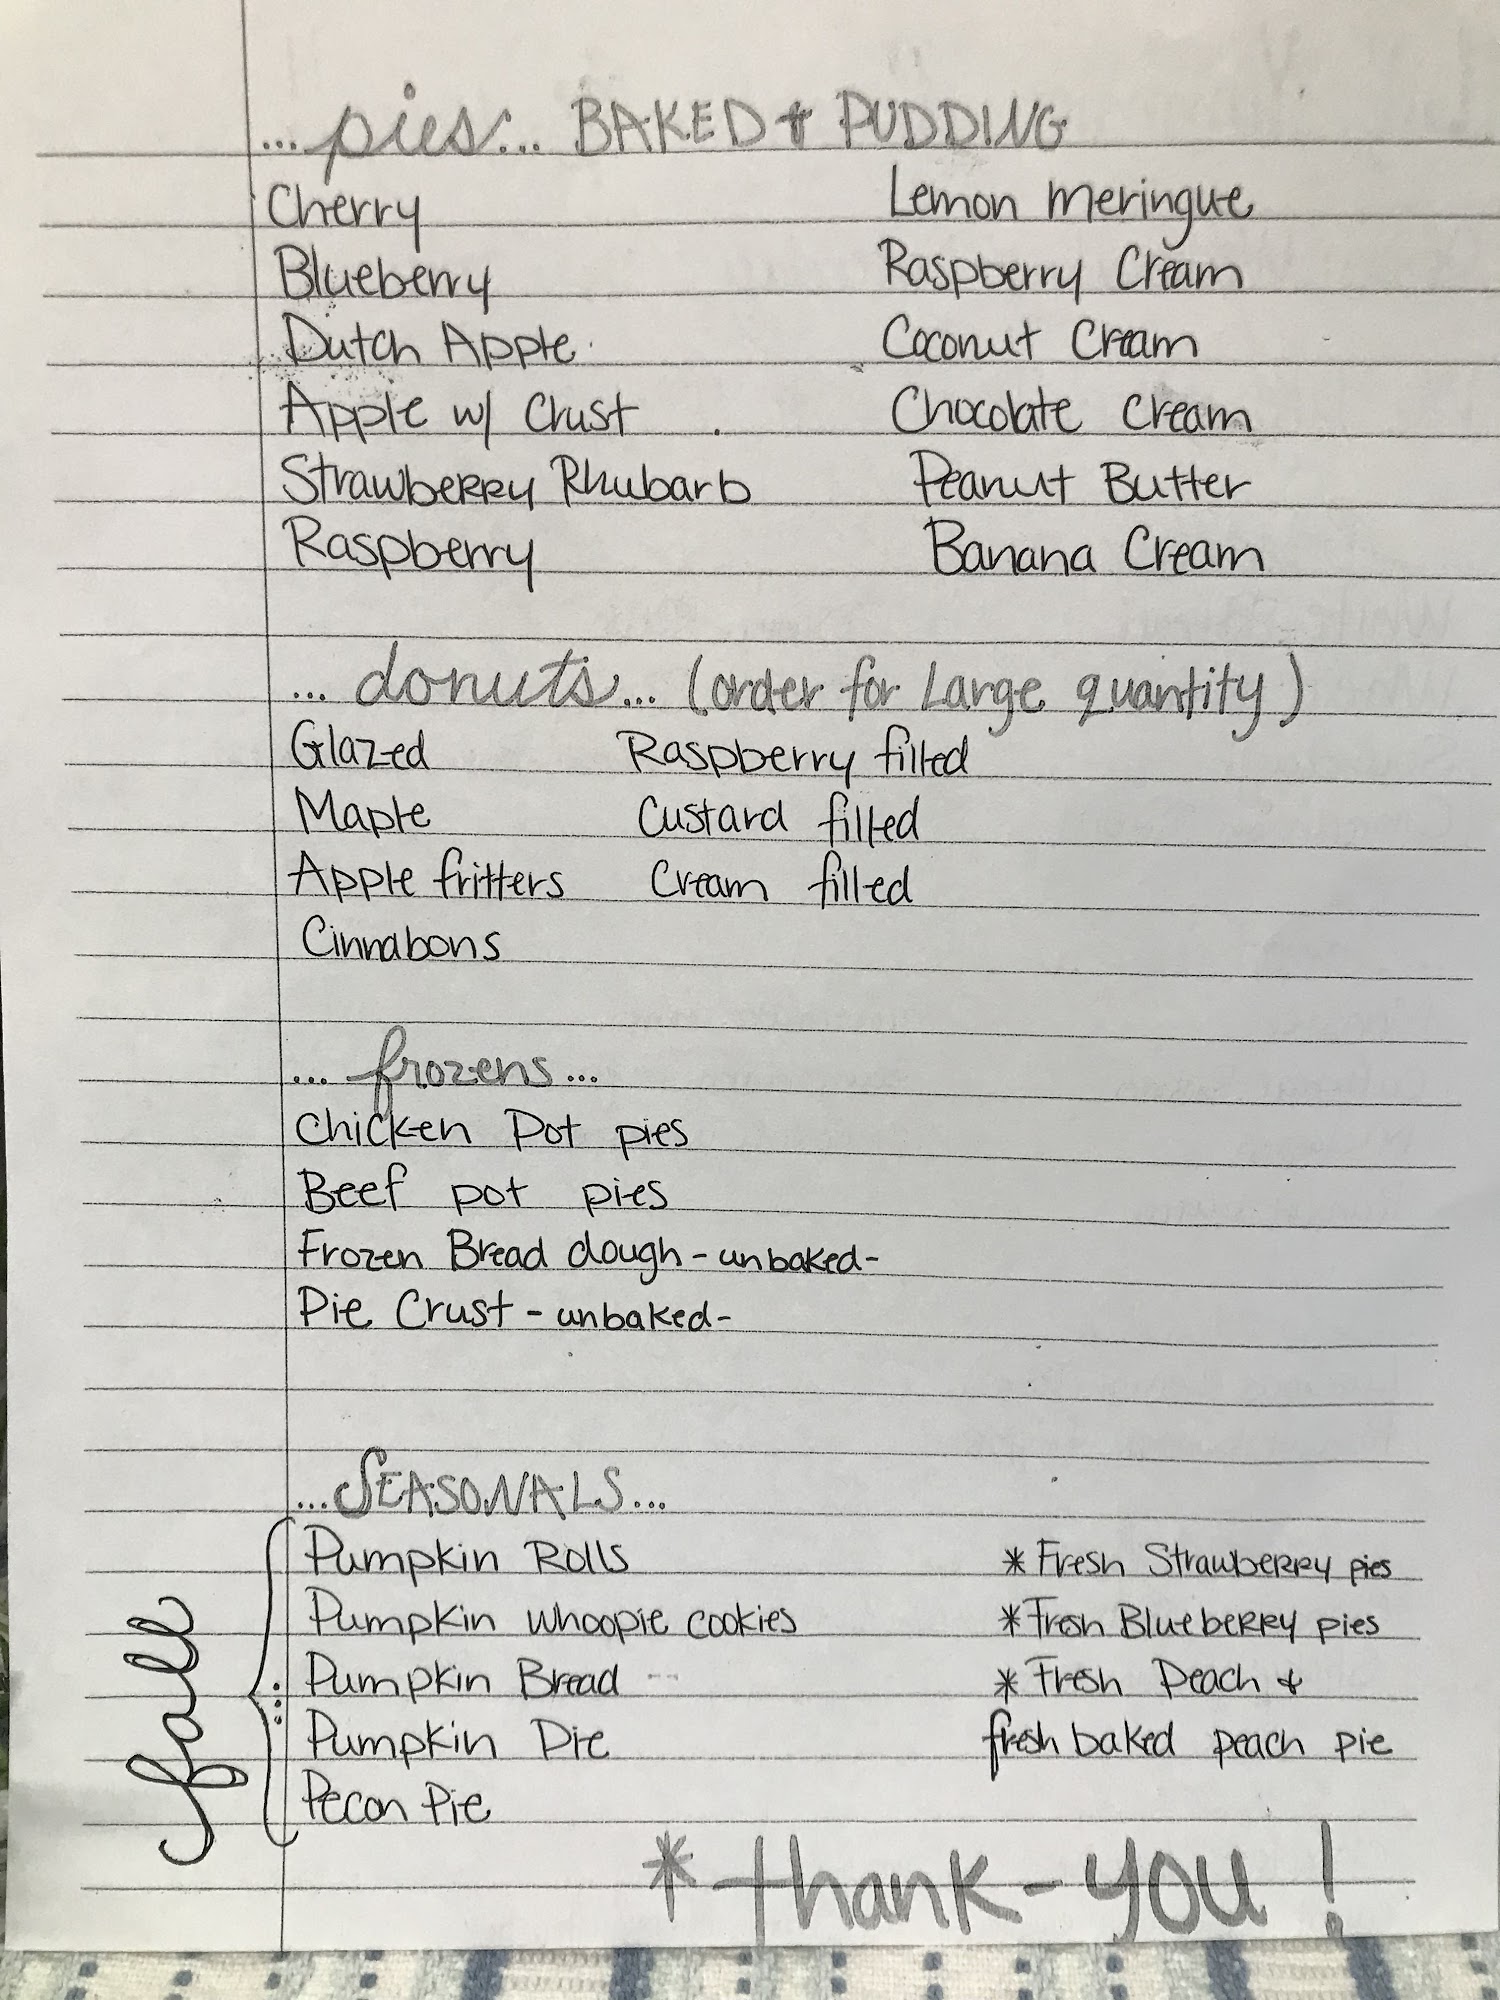 ...pies... BAKED & PUDDING
Cherry Lemon Meringue
Blueberry Raspberry Cream
Dutch Apple Coconut Cream
Apple w/ Crust Chocolate Cream
Strawberry Rhubarb Peanut Butter
Raspberry Banana Cream
... donuts... (order for Large quantity)
Glazed Raspberry filled
Maple Custard filled
Apple fritters Cream filled
Cinnabons
... frozens...
Chicken Pot pies
Beef pot pies
Frozen Bread dough - unbaked -
Pie Crust - unbaked -
...SEASONALS...
Fall
Pumpkin Rolls * Fresh Strawberry pies
Pumpkin whoopie cookies * Fresh Blueberry pies
Pumpkin Bread * Fresh Peach &
Pumpkin Pie fresh baked peach pie
Pecon Pie
* thank-you!